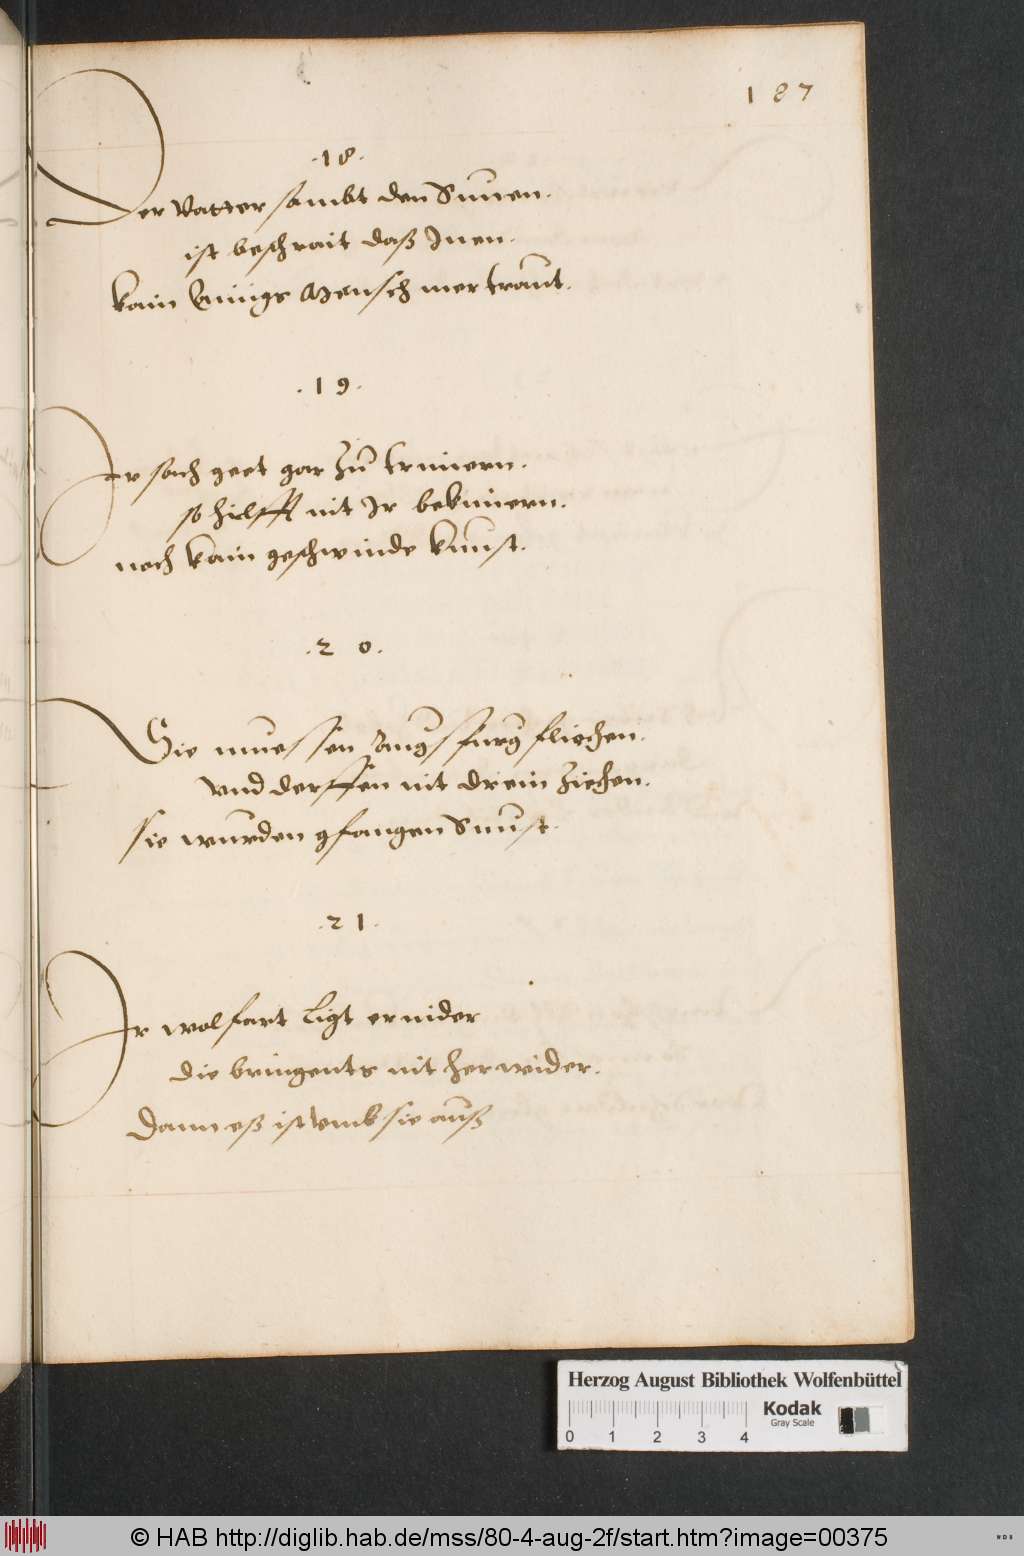 187
.18.
Der Vatter sambt den Sunen.
ist beschrait daß Inen.
kain ainigs Mensch mer traut.
.19.
Ir sach geet gar zu trimern.
so hilfft nit Ir bekimern.
noch kain geschwinde kunst.
.20.
Sie muessen Augspurg fliehen.
vnd derffen nit drein ziehen.
sie wurden gfangen Sunst.
.21.
Ir wolfart ligt ernider
die bringents nit herwider.
Dann eß ist vmb sie auß
Herzog August Bibliothek Wolfenbüttel
Kodak
Gray Scale
0 1 2 3 4
© HAB http://diglib.hab.de/mss/80-4-aug-2f/start.htm?image=00375